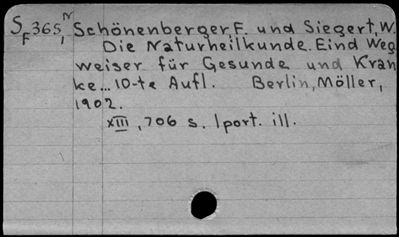 S F 365, N Schönenberger, F. und Siegert, W.
Die Naturheilkunde. Eind Weg
weiser für Gesunde und Kran
ke... 10-te Aufl. Berlin, Möller,
1902.
XIII, 706 s. 1 port. ill.